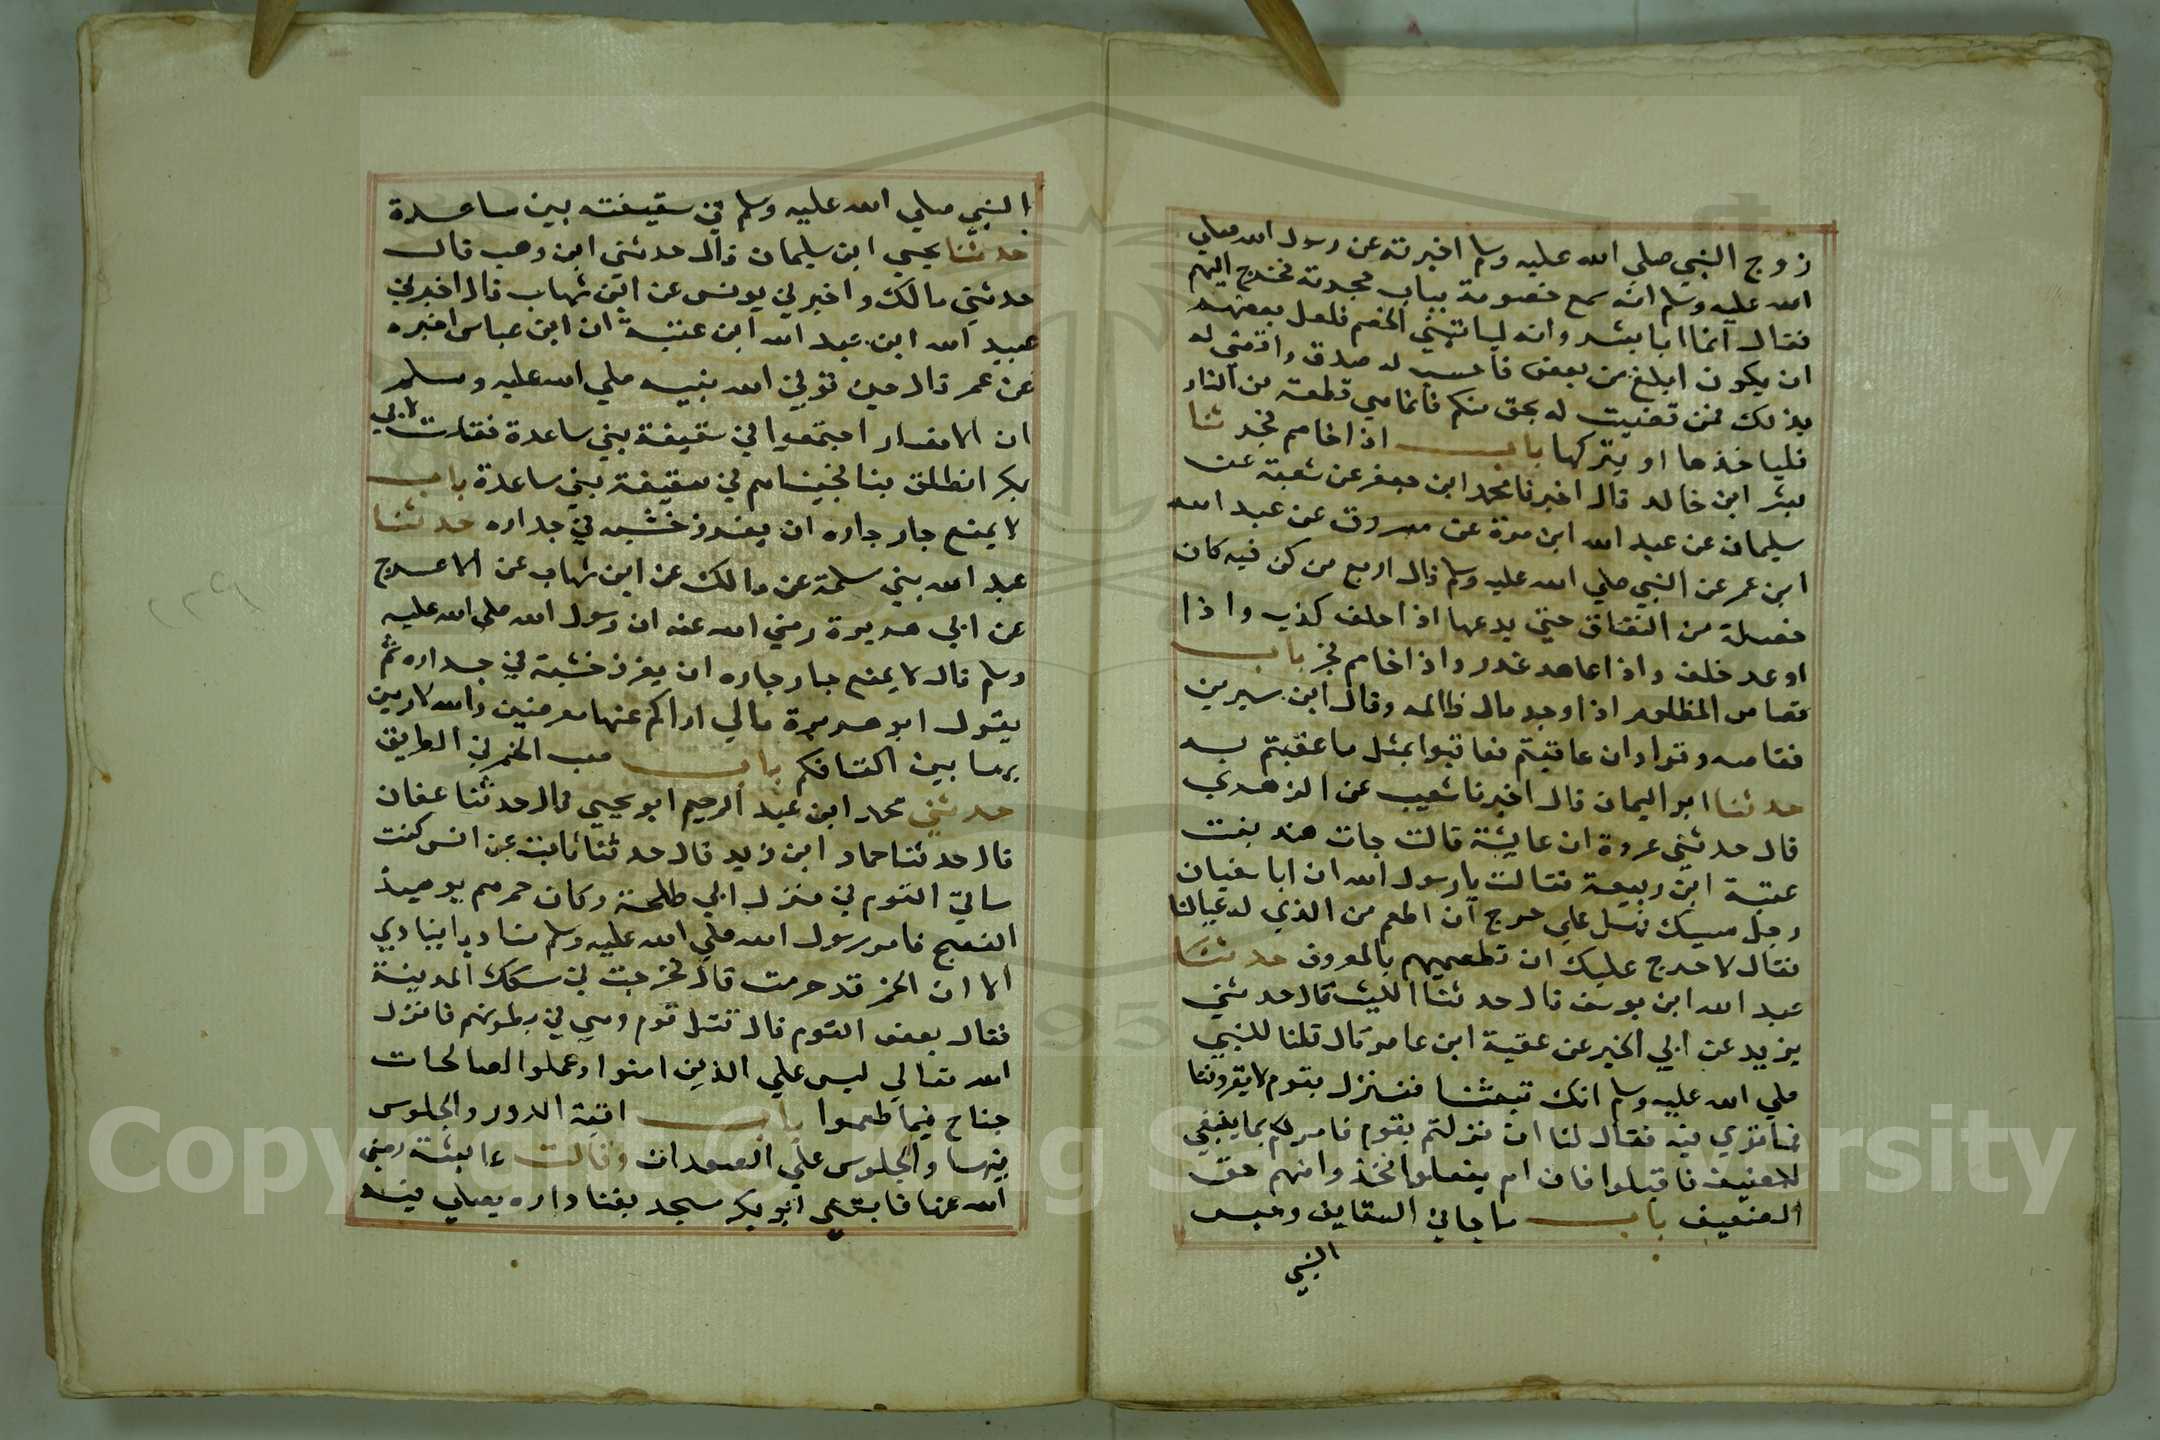 زوج النبي صلي الله عليه وسلم اخبرته عن رسول الله صلي
الله عليه وسلم انه سمع خصومة بباب حجرته فخرج اليهم
فقال انما انا بشر وانه لياتيني الخصم فلعل بعضهم
ان يكون ابلغ من بعض فاحسب له صدق واقضي له
بذلك فمن قضيت له بحق مسلم فانما هي قطعة من النار
فلياخذها او يتركها باب اذا خاصم فجر ثنا
بشر ابن خالد قال اخبرنا محمد ابن جعفر عن شعبة عن
سليمان عن عبد الله ابن مرة عن مسروق عن عبد الله
ابن عمر عن النبي صلي الله عليه وسلم قال اربع من كن فيه كان
خصلة من النفاق حتي يدعها اذا حلف كذب واذا
اوعد خلف واذا عاهد غدر واذا خاصم فجر باب
قصاص المظلوم اذا وجد مال ظالمه وقال ابن سيرين
فقاصه وقرا وان عاقبتم فعاقبوا بمثل ما عقبتم به
حدثنا ابو اليمان قال اخبرنا شعيب عن الزهري
قال حدثني عروة ان عايشة قالت جات هند بنت
عتبة ابن ربيعة فقالت يا رسول الله ان ابا سفيان
رجل مسيك فهل علي حرج ان اطعم من الذي له عيالنا
فقال لا حرج عليك ان تطعميهم بالمعروف حدثنا
عبد الله ابن يوسف قال حدثنا الليث قال حدثني
يزيد عن ابي الخير عن عقبة ابن عامر قال قلنا للنبي
صلي الله عليه وسلم انك تبعثنا فننزل بقوم لا يقرونا
فما تري فيه فقال لنا ان نزلتم بقوم فامر لكم بما ينبغي
للضيف فاقبلوا فان لم يفعلوا فخذوا منهم حق
الضيف باب ما جا في السقايف وجلس
النبي
النبي صلي الله عليه وسلم في سقيفته بين ساعدة
حدثنا يحيي ابن سليمان قال حدثني ابن وهب قال
حدثني مالك واخبرني يونس عن ابن شهاب قال اخبرني
عبيد الله ابن عبد الله ابن عتبة ان ابن عباس اخبره
عن عمر قال حين توفي الله نبيه صلي الله عليه وسلم
ان الانصار اجتمعوا في سقيفة بني ساعدة فقلت لابي
بكر انطلق بنا فجيناهم في سقيفة بني ساعدة باب
لا يمنع جار جاره ان يغرز خشبه في جداره حدثنا
عبد الله بني سلمة عن مالك عن ابن شهاب عن الاعرج
عن ابي هريرة رضي الله عنه ان رسول الله صلي الله عليه
وسلم قال لا يمنع جار جاره ان يغرز خشبة في جداره ثم
يقول ابو هريرة مالي اراكم عنها معرضين والله لارمين
بها بين اكتافكم باب صب الخمر في الطريق
حدثني محمد ابن عبد الرحيم ابو يحيي قال حدثنا عفان
قال حدثنا حماد ابن زيد قال حدثنا ثابت عن انس كنت
ساقي القوم في منزل ابي طلحة وكان خمرهم يوميذ
الفضيخ فامر رسول الله صلي الله عليه وسلم مناديا ينادي
الا ان الخمر قد حرمت قال فخرجت في سكك المدينة
فقال بعض القوم قال قتل قوم وهي في بطونهم فانزل
الله تعالي ليس علي الذين امنوا وعملوا الصالحات
جناح فيما طعموا باب افنية الدور والجلوس
فيها والجلوس علي الصعدات وقالت عايشة رضي
الله عنها فابتني ابو بكر مسجد بفنا داره يصلي فيه
٢٢٩
Copyright © King Saud University